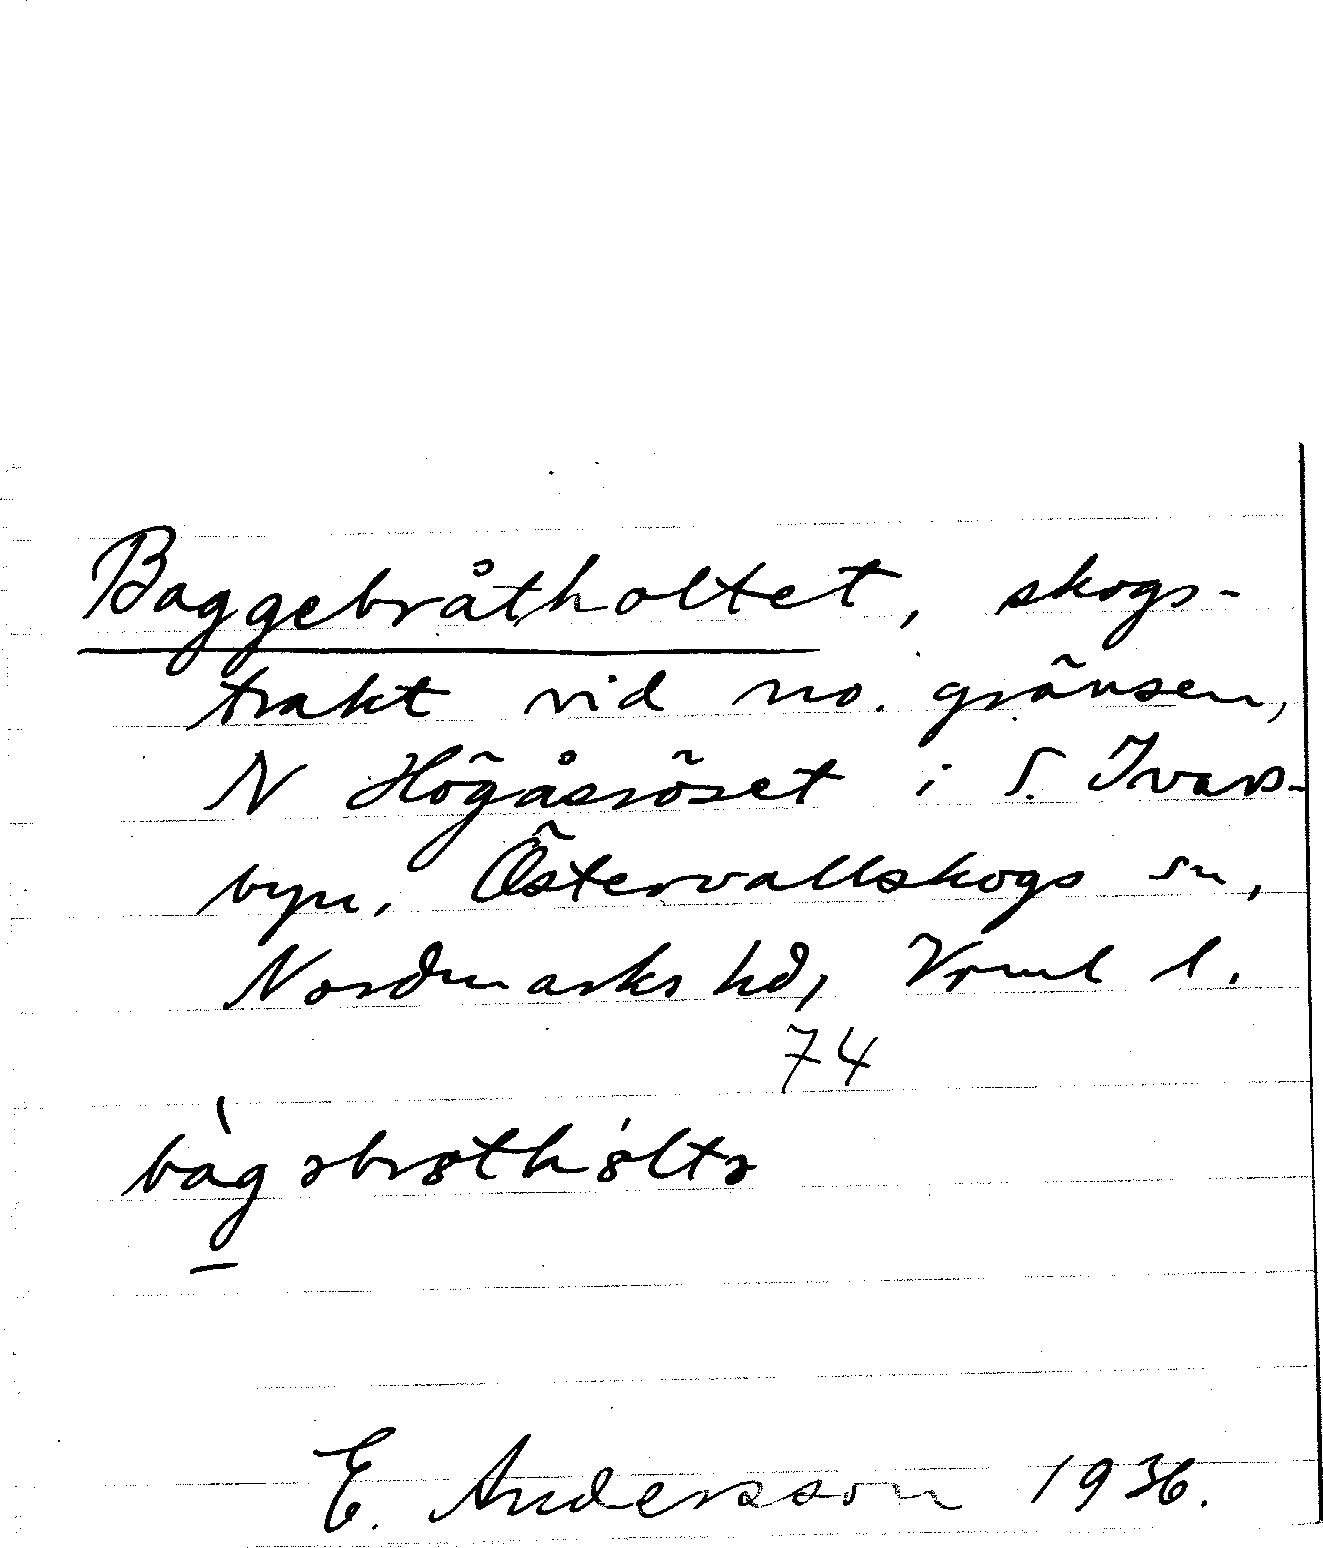 Baggebråtholtet, skogs-
trakt vid no. gränsen,
N Högåsröset i S. Ivars-
byn, Östervallskogs sn,
Nordmarks hd, Vrml l.
74
E. Andersson 1936.